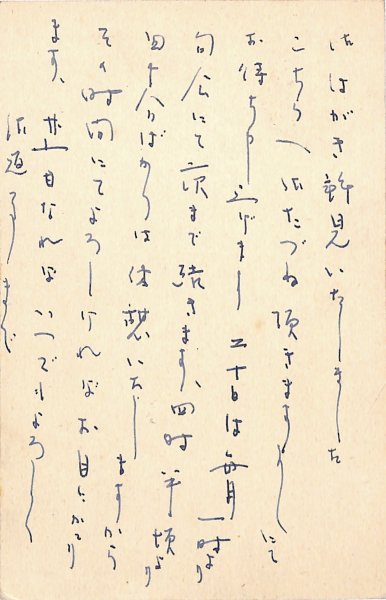 おはがき拝見いたしました
こちらへおたづね頂きますよしにて
お待ち申上げます 二十日は毎月一時より
句会にて夜まで続きます、四時半頃より
四十分ばかりは休憩いたしますから
その時間にてよろしければお目にかゝり
ます、廿一日なればいつでもよろしく